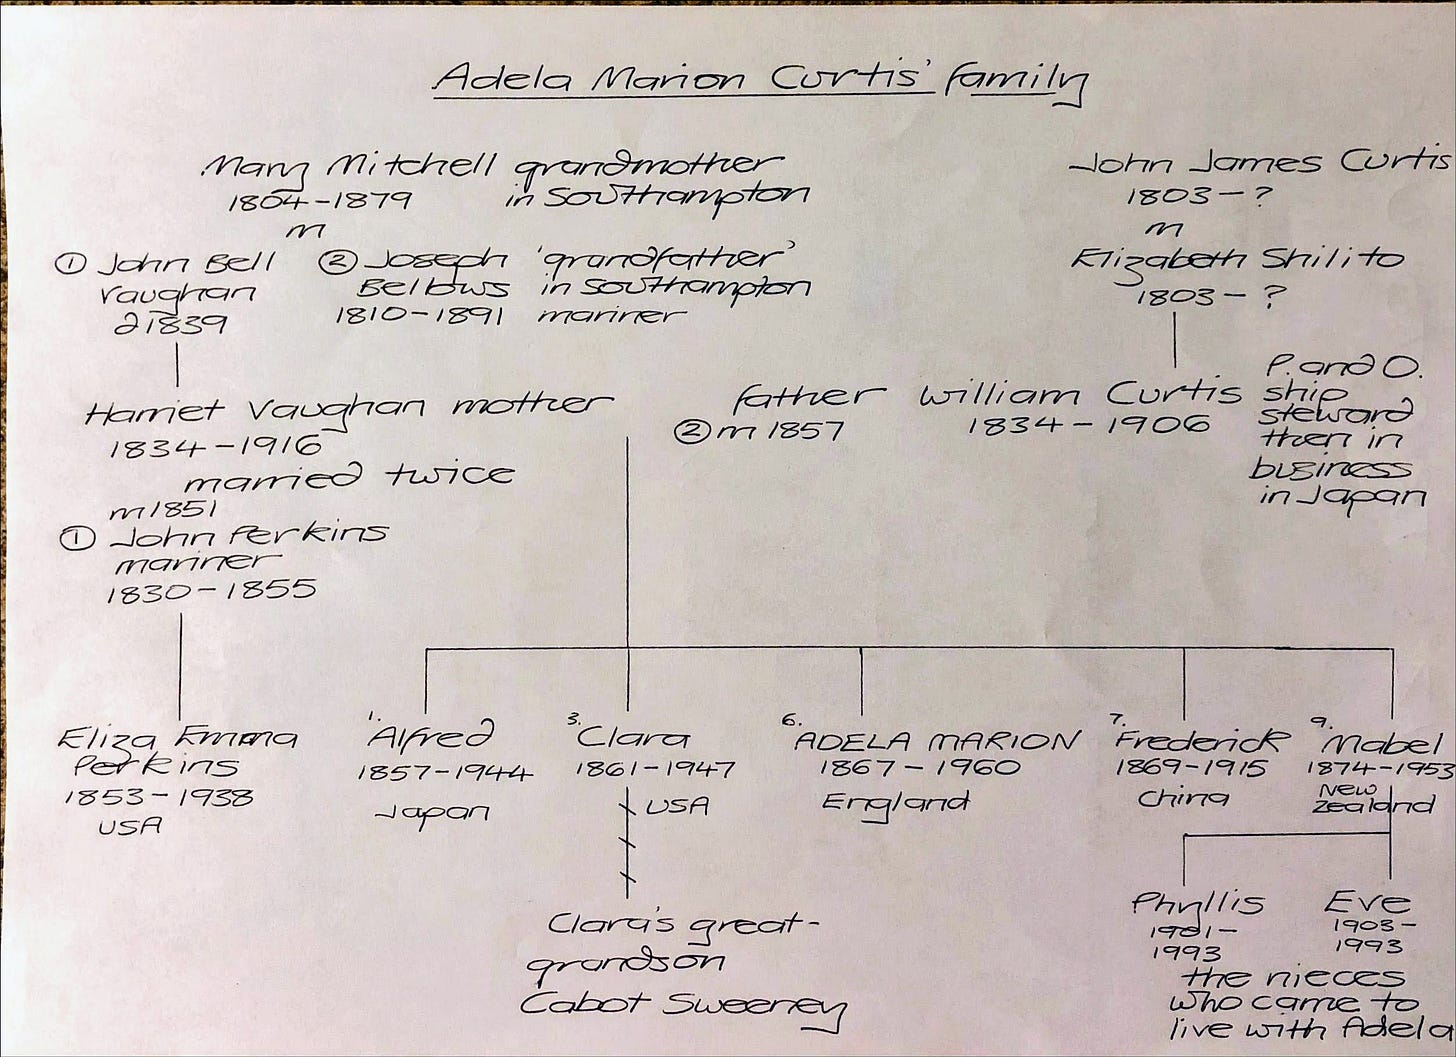 Adela Marion Curtis' family
Mary Mitchell grandmother
1804-1879 in Southampton
m
① John Bell
Vaughan
d1839
② Joseph 'grandfather'
Bellows in Southampton
1810-1891 mariner
John James Curtis
1803-?
m
Elizabeth Shilito
1803-?
Harriet Vaughan mother
1834-1916
married twice
m1851
① John Perkins
mariner
1830-1855
father William Curtis
② m 1857 1834-1906
P. and O.
ship
steward
then in
business
in Japan
Eliza Emma
Perkins
1853-1938
USA
1. Alfred
1857-1944
Japan
3. Clara
1861-1947
USA
Clara's great-
grandson
Cabot Sweeney
6. ADELA MARION
1867-1960
England
7. Frederick
1869-1915
China
9. Mabel
1874-1953
New
Zealand
Phyllis
1901-
1993
Eve
1903-
1993
the nieces
who came to
live with Adela